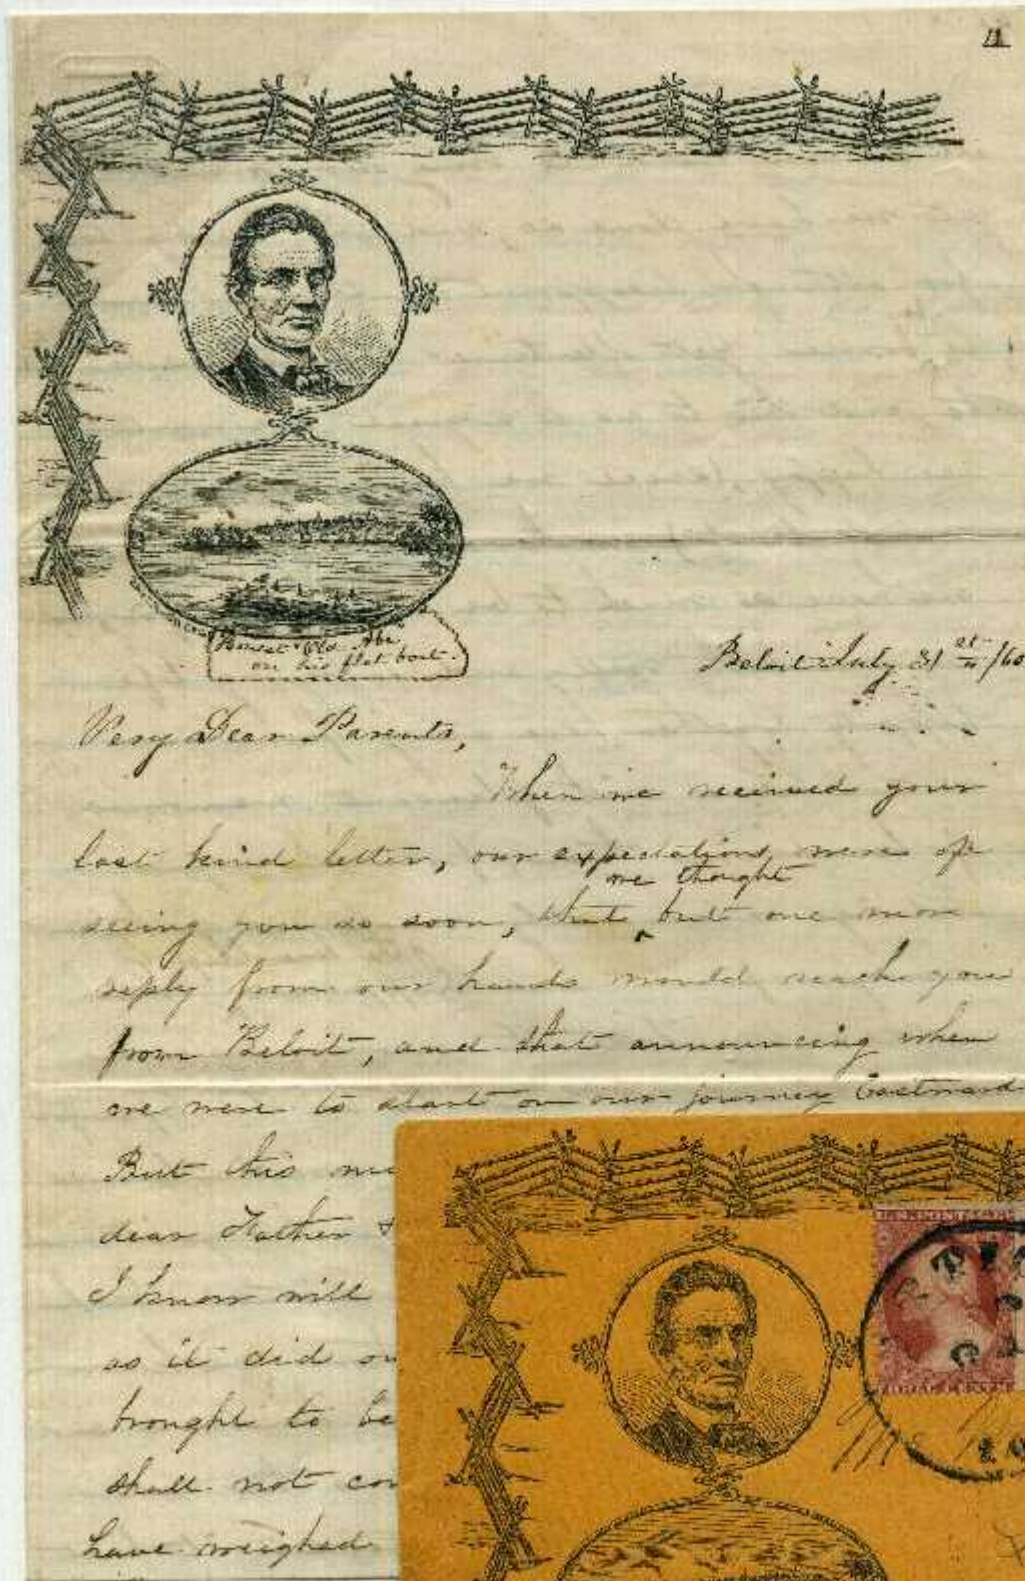 "Honest Old Abe"
on his flat boat.
Beloit July 31st /60
Very Dear Parents,
When we received your
last kind letter, our expectations were of
we thought
seeing you so soon, that but one more
reply from our hands would reach you
from Beloit, and that announcing when
we were to start on our journey Eastward
But this
dear Father &
I know will
as it did
brought to be
shall not
have weighed
U.S. POSTAGE